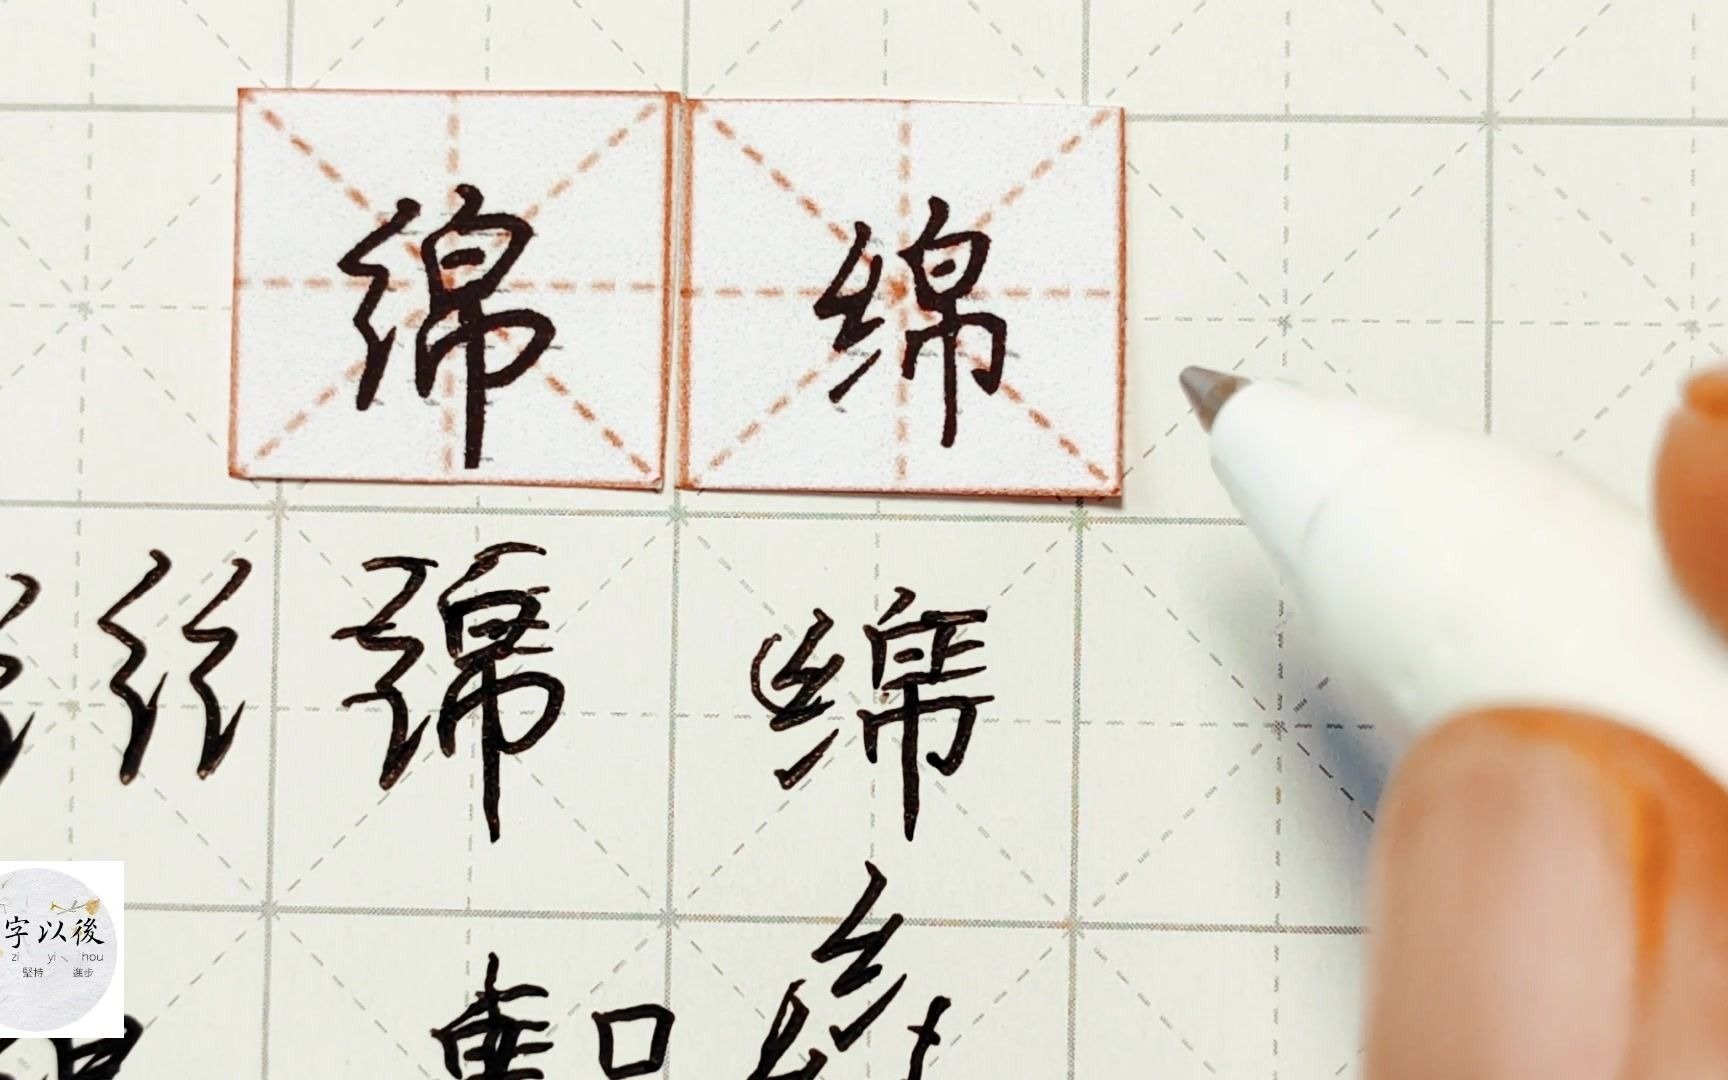 绵 绵
纟 纟 绵 绵
口 纟
字以後
zi yi hou
堅持 進步